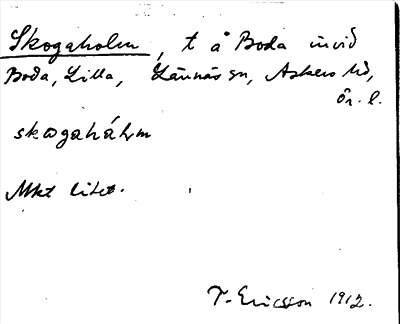 Skogaholm, t å Boda invid
Boda, Lilla, Lännäs sn, Askers hd,
Ör. l.
skogahålm
Mkt litet.
T. Ericsson 1912.